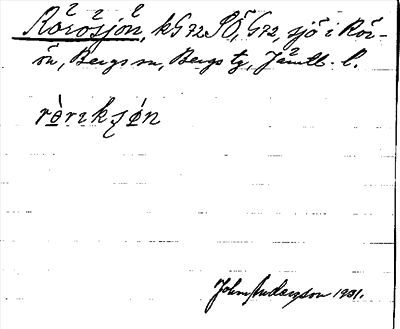 Rörösjön, kG72SÖ, G72, sjö i Rör-
ön, Bergs sn, Bergs tg, Jämtl. l.
rèriksjǿn
John Anderzson 1901.